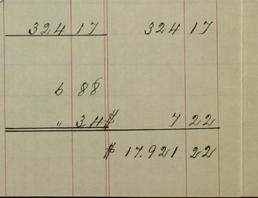 324 17 324 17
6 88
" 34 $ 7 22
$ 17.921 22